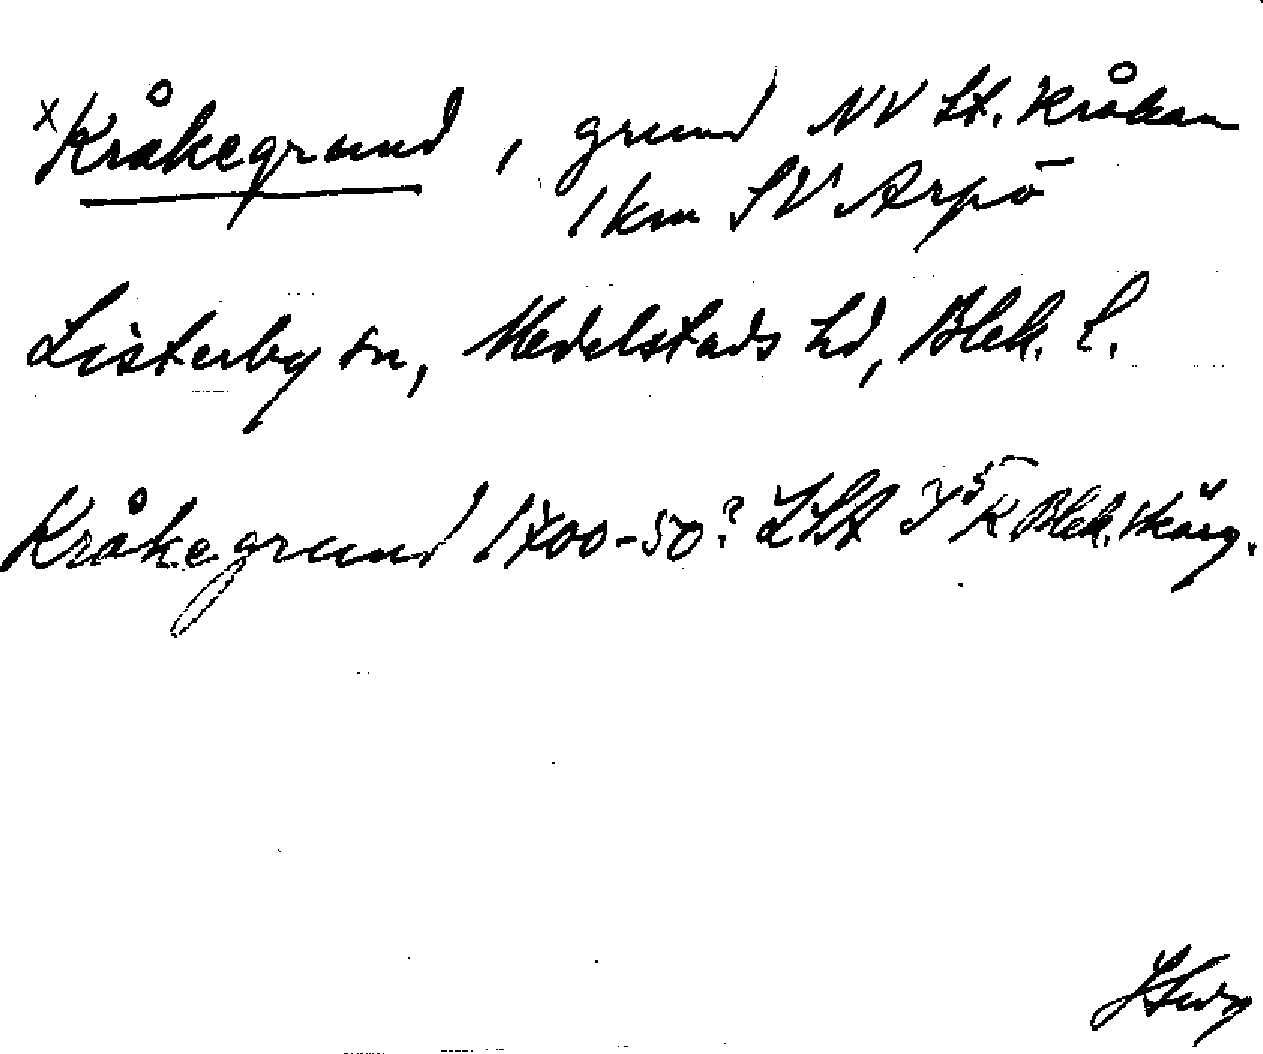 x Kråkegrund, grund NV St. Kråkan
1 km SV Arpö
Listerby sn, Medelstads hd, Blek. l.
Kråkegrund 1700-50? LSA Blek. skärg.